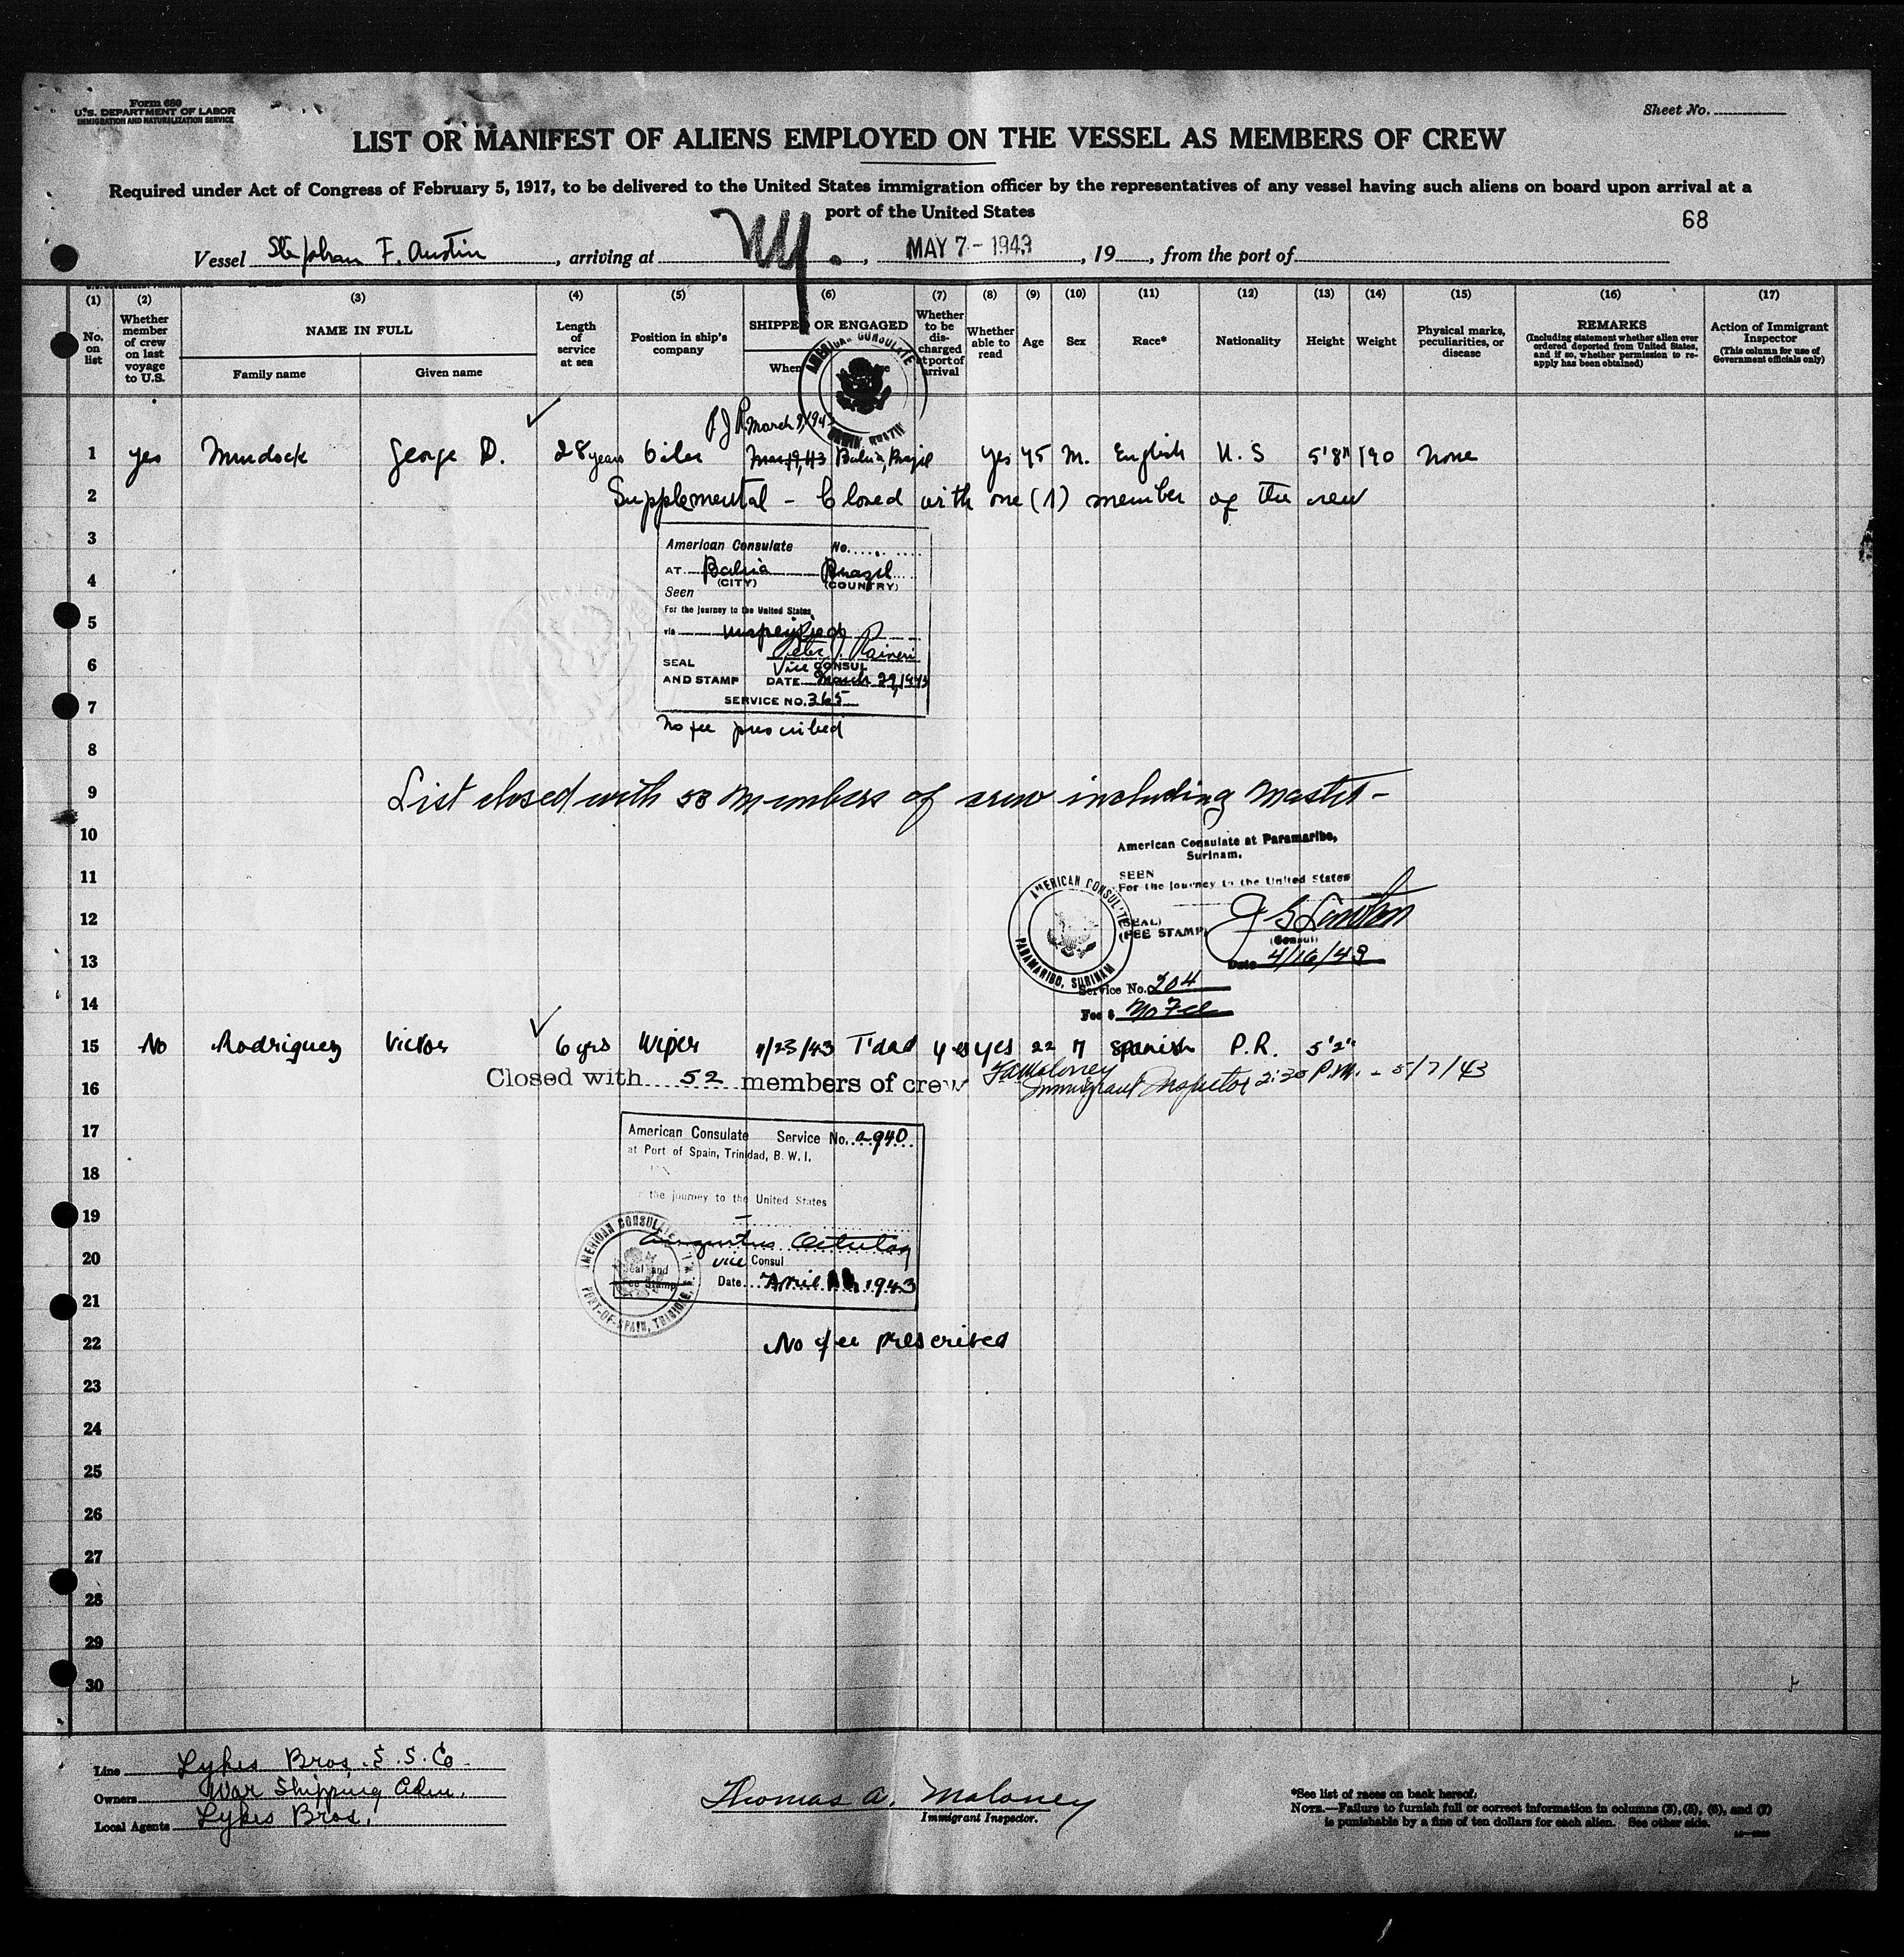 Form 680
U.S. DEPARTMENT OF LABOR
IMMIGRATION AND NATURALIZATION SERVICE
Sheet No.
LIST OR MANIFEST OF ALIENS EMPLOYED ON THE VESSEL AS MEMBERS OF CREW
Required under Act of Congress of February 5, 1917, to be delivered to the United States immigration officer by the representatives of any vessel having such aliens on board upon arrival at a
port of the United States
68
Vessel Stephen F. Austin, arriving at N.Y., MAY 7 - 1943, 19, from the port of
(1) (2) (3) (4) (5) (6) (7) (8) (9) (10) (11) (12) (13) (14) (15) (16) (17)
No. on list
Whether member of crew on last voyage to U.S.
NAME IN FULL
Family name
Given name
Length of service at sea
Position in ship's company
SHIPPED OR ENGAGED
When
Whether to be discharged at port of arrival
Whether able to read
Age
Sex
Race*
Nationality
Height
Weight
Physical marks, peculiarities, or disease
REMARKS
(Including statement whether alien ever ordered deported from United States, and if so, whether permission to reapply has been obtained)
Action of Immigrant Inspector
(This column for use of Government officials only)
AMERICAN CONSULATE
PJR March 9, 1943
1 yes Murdock George D. 28 years Oiler Mar 19, 43 Bahia, Brazil Yes 45 M. English U.S 5'8" 190 None
2 Supplemental - Closed with one (1) member of the crew
3
American Consulate No.
4
AT Bahia Brazil
(CITY) (COUNTRY)
Seen
For the journey to the United States
5
via
Peter J. Raineri
6
SEAL Vice CONSUL
AND STAMP DATE March 29, 1943
7
SERVICE NO. 365
No fee prescribed
8
9 List closed with 53 members of crew including master -
10
American Consulate at Paramaribo,
Surinam.
11
SEEN
For the journey to the United States
AMERICAN CONSUL'TE
PARAMARIBO, SURINAM
12
(SEAL)
(FEE STAMP)
(Consul)
13
Date 4/16/43
Service No. 204
14
Fee $ No Fee
15 No Rodriguez Victor 6 yrs Wiper 4/23/43 T'dad yes yes 22 M Spanish P.R. 5'2"
16 Closed with 52 members of crew T A Maloney
Immigrant Inspector 2:30 P.M. - 5/7/43
17
American Consulate Service No. 2940
at Port of Spain, Trinidad, B. W. I.
18
the journey to the United States
19
AMERICAN CONSULATE
PORT-OF-SPAIN, TRINIDAD,
Augustus
20
Vice Consul
Seal and
Fee Stamp
Date April 1943
21
22 No fee prescribed
23
24
25
26
27
28
29
30
Line Lykes Bros. S.S. Co.
Owners War Shipping Adm.
Local Agents Lykes Bros.
Thomas A. Maloney
Immigrant Inspector.
*See list of races on back hereof.
NOTE.—Failure to furnish full or correct information in columns (3), (5), (6), and (7)
is punishable by a fine of ten dollars for each alien. See other side.